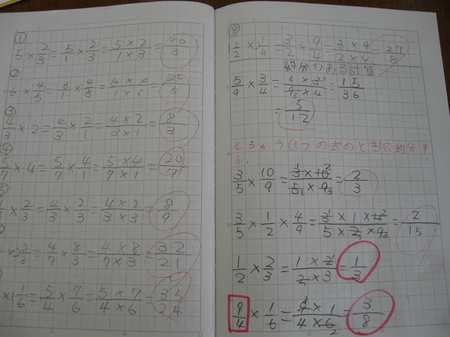 ①
5 × 2/3 = 5/1 × 2/3 = 5×2/1×3 = 10/3
②
③
4/3 × 2 = 4/3 × 2/1 = 4×2/3×1 = 8/3
④
5/7 × 4 = 5/7 × 4/1 = 5×4/7×1 = 20/7
2/3 = 4/3 × 2/3 = 4×2/3×3 = 8/9
× 2 2/3 = 4/7 × 8/3 = 4×8/7×3 = 32/21
× 1 1/6 = 5/4 × 7/6 = 5×7/4×6 = 35/24
⑧
1/2 × 1/4 = 3/2 × 9/4 = 3×9/2×4 = 27/8
約分のある計算
5/9 × 3/4 = 5×3/9×4 = 15/36
= 5/12
とちゅう(1つの式のとき)に約分する.
3/5 × 10/9 = 3×10/5×9 = 2/3
3/5 × 1/2 × 4/9 = 3×1×4/5×2×9 = 2/15
1/2 × 2/3 = 1×2/2×3 = 1/3
9/4 × 1/6 = 9×1/4×6 = 3/8